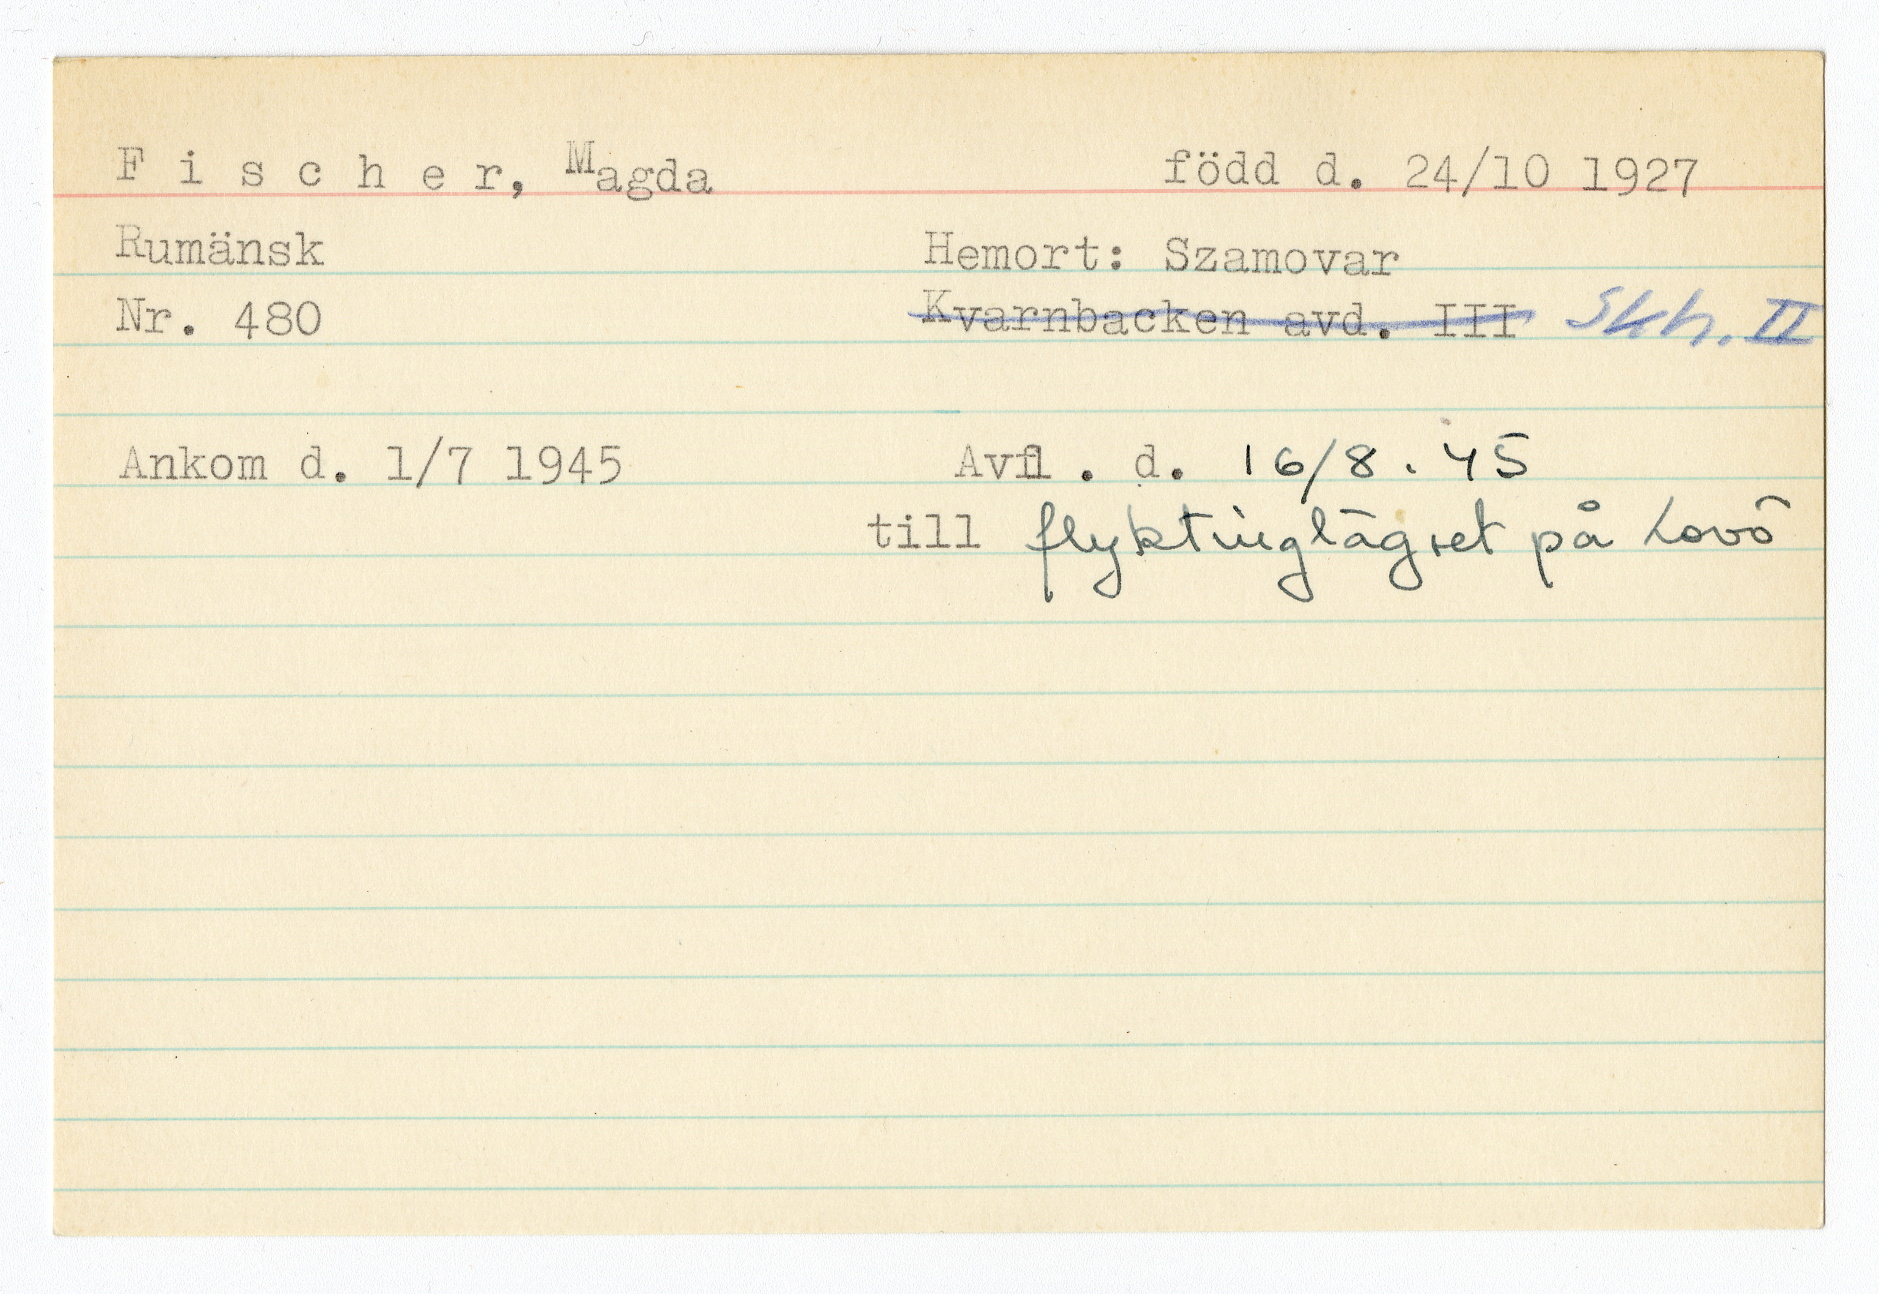 F i s c h e r, Magda född d. 24/10 1927
Rumänsk Hemort: Szamovar
Nr. 480 Kvarnbacken avd. III Skh. II
Ankom d. 1/7 1945 Avfl. d. 16/8.45
till flyktinglägret på Lovö